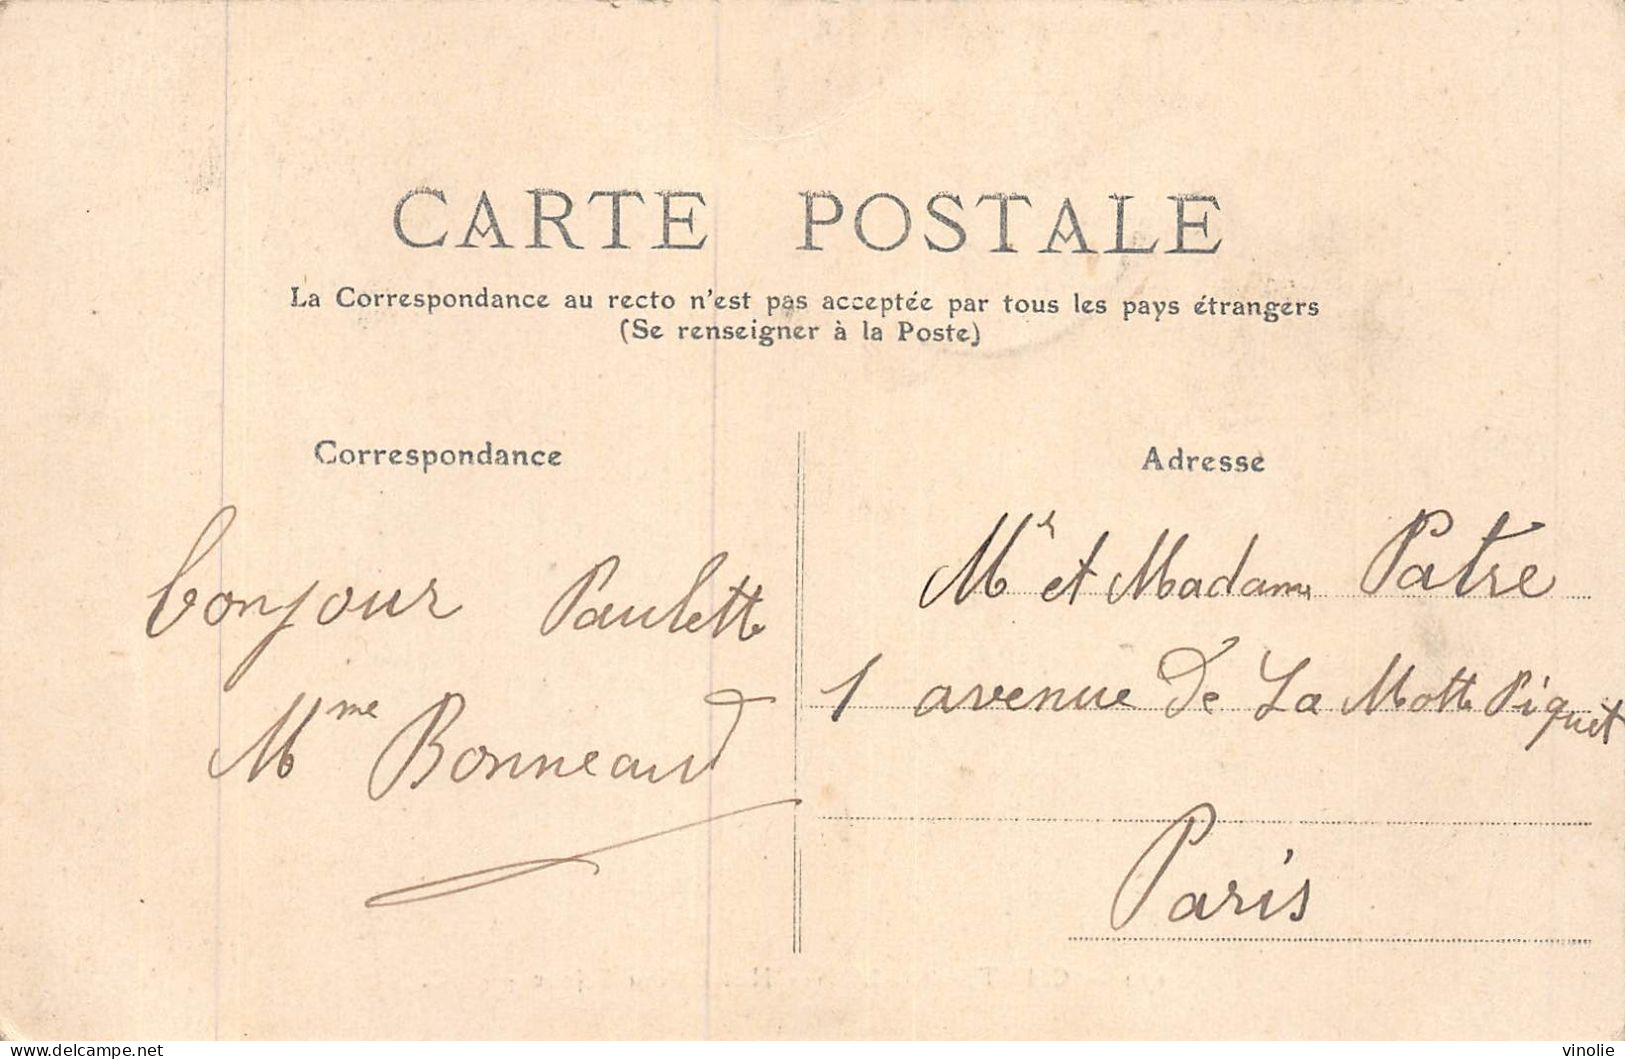 CARTE POSTALE
La Correspondance au recto n'est pas acceptée par tous les pays étrangers
(Se renseigner à la Poste)
Correspondance
bonjour Paulette
Mme Bonneaud
Adresse
Mr et Madame Patre
1 avenue de La Motte Piquet
Paris
www.delcampe.net
vinolie